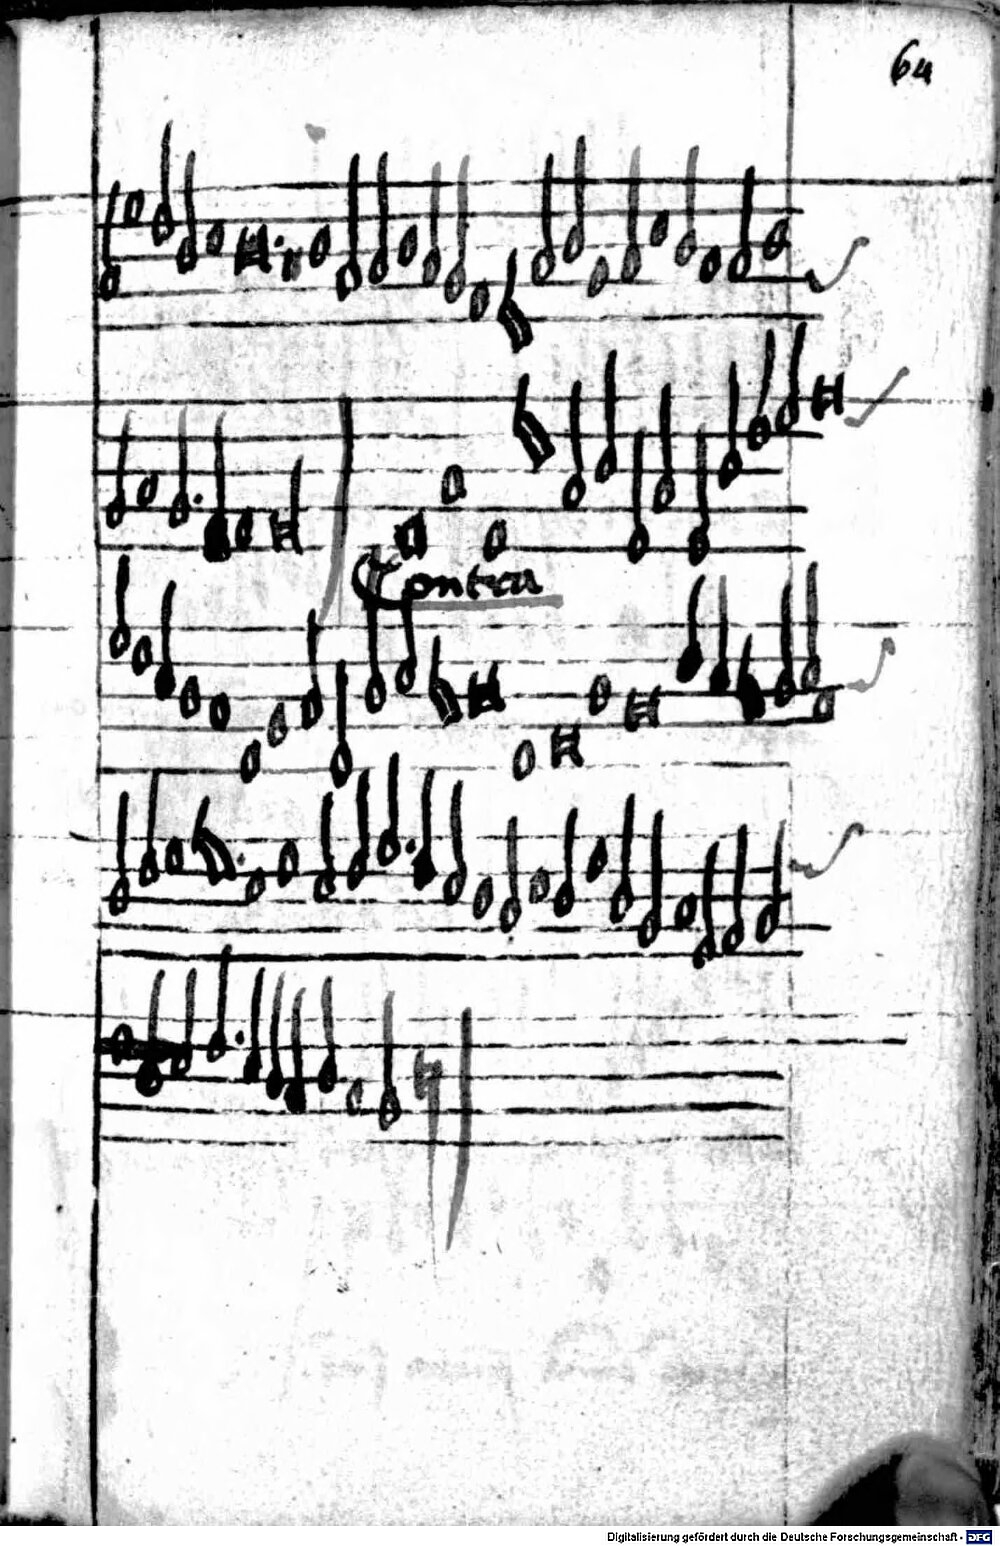 64
Contra
Digitalisierung gefördert durch die Deutsche Forschungsgemeinschaft - DFG